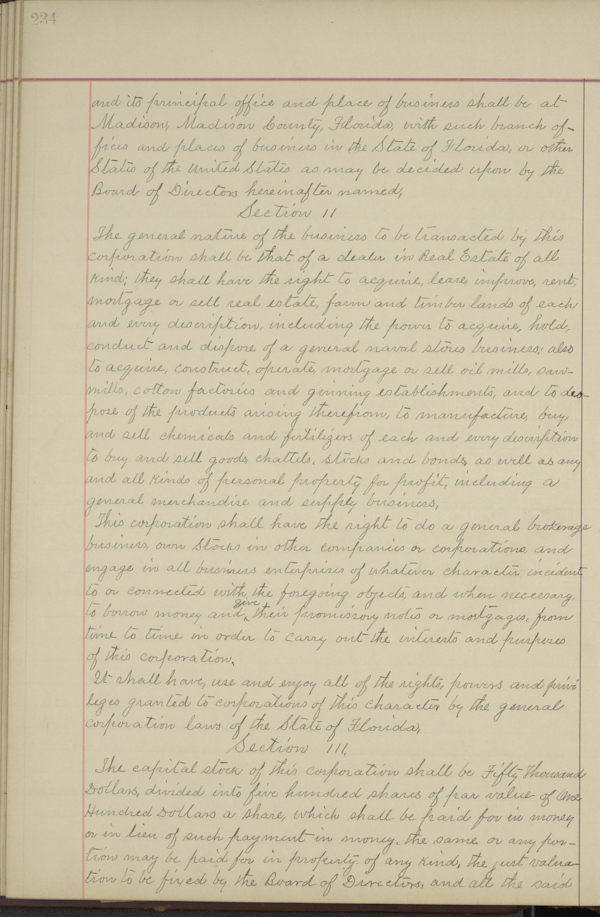 234
and its principal office and place of business shall be at
Madison, Madison County, Florida, with such branch of-
fices and places of business in the State of Florida, or other
States of the United States as may be decided upon by the
Board of Directors hereinafter named,
Section 11
The general nature of the business to be transacted by this
corporation shall be that of a dealer in Real Estate of all
kind; they shall have the right to acquire, lease, improve, rent,
mortgage or sell real estate, farm and timber lands of each
and every description, including the power to acquire, hold,
conduct and dispose of a general naval stores business; also
to acquire, construct, operate, mortgage or sell oil mills, saw-
mills, cotton factories and ginning establishments, and to dis-
pose of the products arising therefrom, to manufacture, buy
and sell chemicals and fertilizers of each and every description
to buy and sell goods, chattels, stocks and bonds, as well as any
and all kinds of personal property for profit, including a
general merchandise and supply business,
This corporation shall have the right to do a general brokerage
business, own Stocks in other companies or corporations, and
engage in all business enterprises of whatever character incident
to or connected with the foregoing objects, and when necessary
to borrow money and give their promissory notes or mortgages, from
time to time in order to carry out the interests and purposes
of this corporation,
It shall have, use and enjoy all of the rights, powers and privi
leges granted to corporations of this character by the general
corporation laws of the State of Florida,
Section 111,
The capital stock of this corporation shall be Fifty Thousand
Dollars, divided into five hundred shares of par value of One
Hundred Dollars a share, which shall be paid for in money
or in lieu of such payment in money, the same or any por-
tion may be paid for in property of any kind, the just valua-
tion to be fixed by the Board of Directors, and all the said